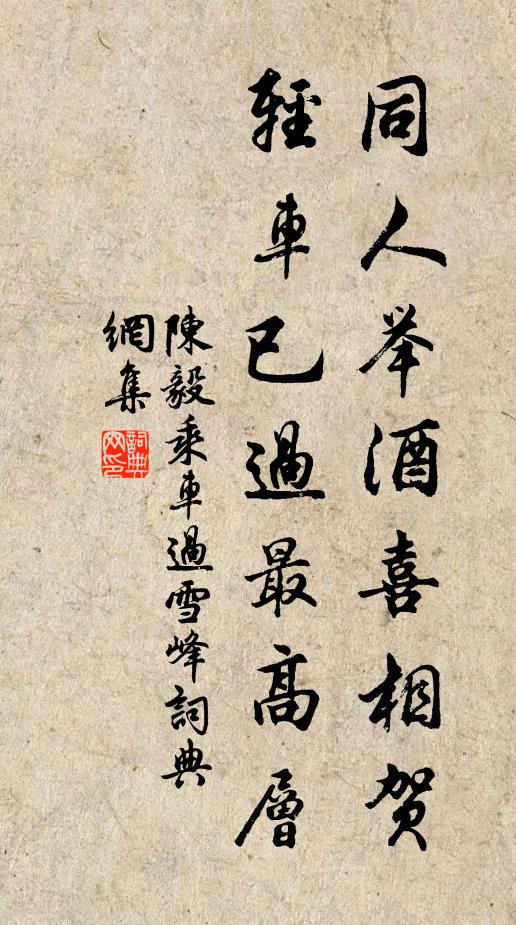 同人举酒喜相贺
輕車已過最高層
陳毅乘車過雪峰詞典
網集
詞典网印